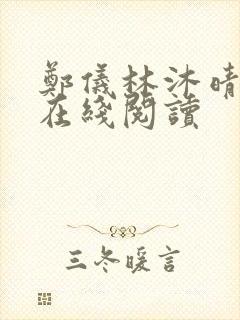 鄭儀林沐晴
在綫閱讀
三冬暖言